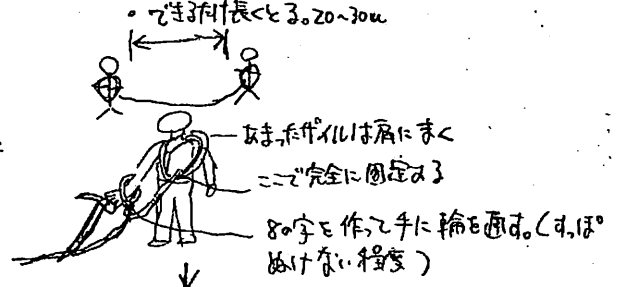 ・できるだけ長くとる。20〜30m
あまったザイルは肩にまく
ここで完全に固定する
8の字を作って手に輪を通す。(すっぽ
ぬけない程度)